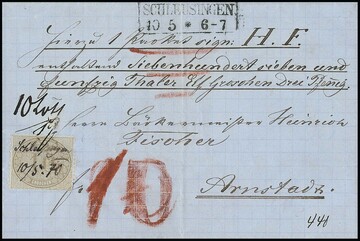 SCHLEUSINGEN
10 5 * 6-7
Hierzu 1 Packet sign: H. F.
enthaltend Siebenhundert sieben und
funfzig Thaler Elf Groschen Drei Pfennig.
10 Loth
Herrn Bäckermeister Heinrich
Fischer
Schleusingen
10/5. 70
10
Arnstadt.
440